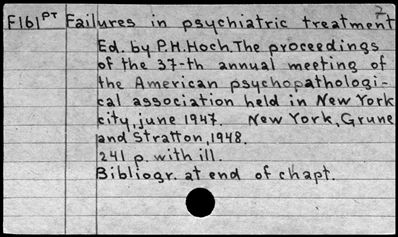 2
F161PT Failures in psychiatric treatment
Ed. by P.H.Hoch. The proceedings
of the 37-th annual meeting of
the American psychopathologi-
cal association held in New York
city, june 1947. New York, Grune
and Stratton, 1948.
241 p. with ill.
Bibliogr. at end of chapt.